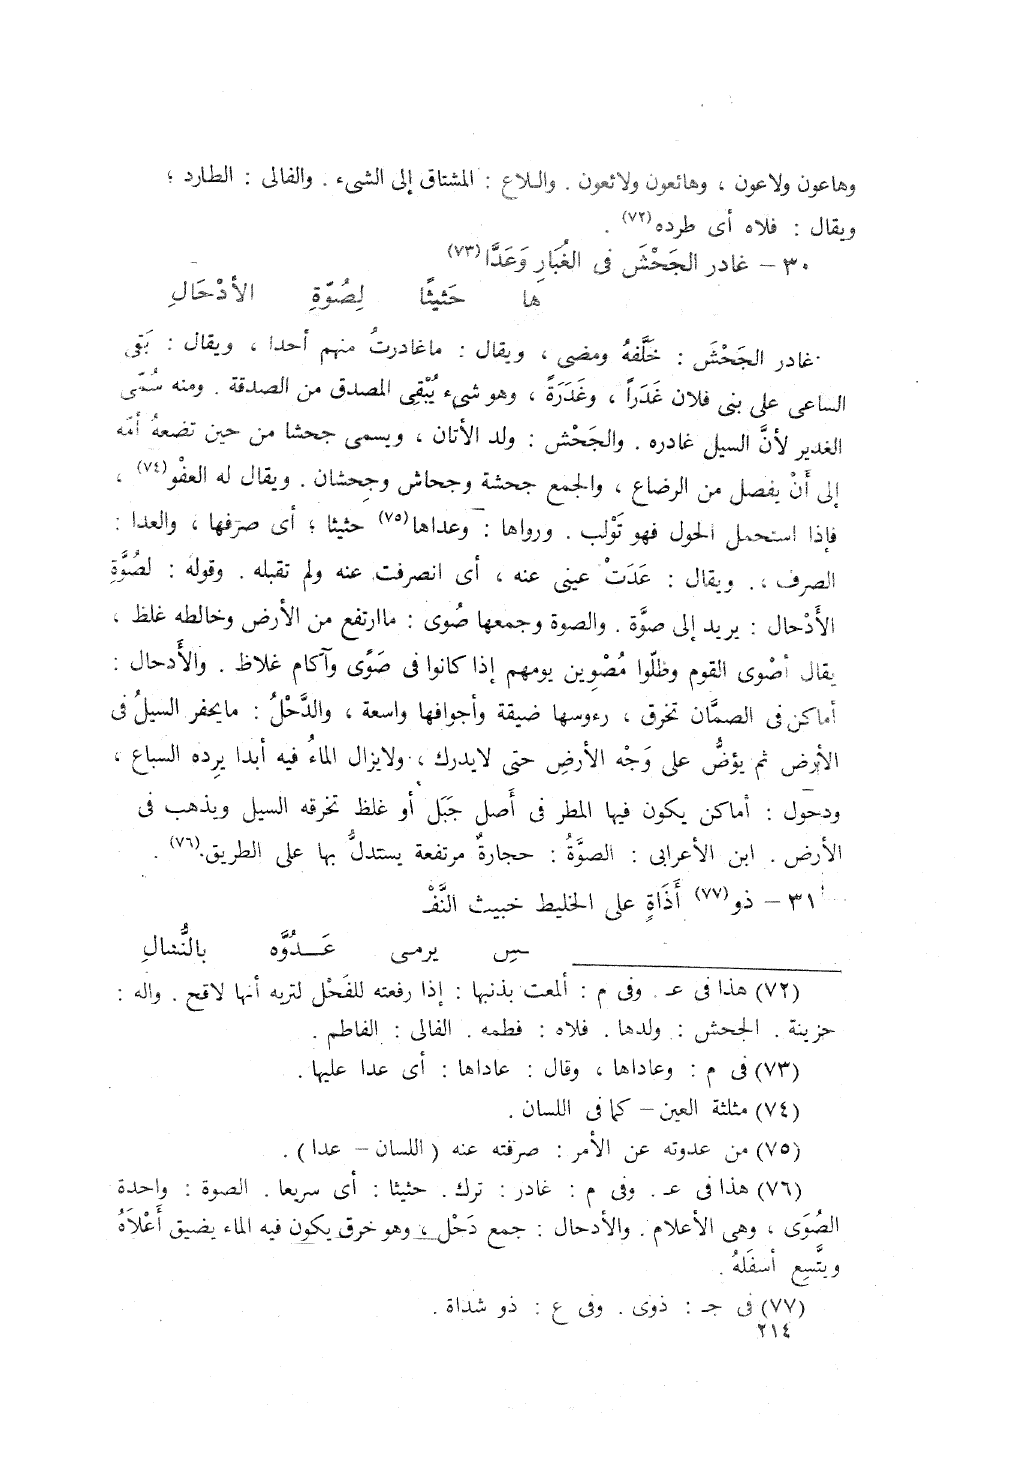 وهاعون ولاعون ، وهائعون ولائعون . واللاع : المشتاق إلى الشيء . والفالى : الطارد ؛
ويقال : فلاه أى طرده(٧٢) .
٣٠ – غادر الجَحْشَ فى الغُبَارِ وَعَدَّا(٧٣)
ها حَثيثًا لِصُوّةِ الأدْحَالِ
غادر الجَحْشَ : خَلَّفهُ ومضى ، ويقال : ماغادرتُ منهم أحدا ، ويقال : بَقى
الساعى على بنى فلان غَدَراً ، وغَدَرَةً ، وهو شىء يُبْقِى المصدق من الصدقة . ومنه سُمّى
الغدير لأنَّ السيل غادره . والجَحْش : ولد الأتان ، ويسمى جحشا من حين تضعهُ أمّه
إلى أَنْ يفصل من الرضاع ، والجمع جحشة وجحاش وجِحشان . ويقال له العفْو(٧٤) ،
فإذا استحمل الحول فهو تَوْلب . ورواها : وعداها(٧٥) حثيثا ؛ أى صرَفها ، والعدا :
الصرف ، . ويقال : عَدَتْ عينى عنه ، أى انصرفت عنه ولم تقبله . وقوله : لصُوَّةِ
الأَدْحال : يريد إلى صوَّة . والصوة وجمعها صُوى : ماارتفع من الأرض وخالطه غلظ ،
يقال أصْوى القوم وظلّوا مُصْوِين يومهم إذا كانوا فى صَوًى وآكام غلاظ . والأَدحال :
أماكن فى الصمَّان تخرق ، رءوسها ضيقة وأجوافها واسعة ، والدَّحْلُ : مايحفر السيلُ فى
الأرض ثم يؤضُّ على وَجْه الأرضِ حتى لايدرك ، ولايزال الماءُ فيه أبدا يرِده السباع ،
ودحول : أماكن يكون فيها المطر فى أَصل جَبَل أو غلظ تخرقه السيل ويذهب فى
الأرض . ابن الأعرابى : الصوَّةُ : حجارةٌ مرتفعة يستدلُّ بها على الطريق.(٧٦) .
٣١ – ذو(٧٧) أَذَاةٍ على الخليط خبيث النَّفْـ
ـسِ يرمى عَـدُوَّه بالنُّسَالِ
(٧٢) هذا فى عـ . وفى م : ألمعت بذنبها : إذا رفعته للفَحْل لتريه أنها لاقح . واله :
حزينة . الجحش : ولدها . فلاه : فطمه . الفالى : الفاطم .
(٧٣) فى م : وعاداها ، وقال : عاداها : أى عدا عليها .
(٧٤) مثلثة العين – كما فى اللسان .
(٧٥) من عدوته عن الأمر : صرفته عنه ( اللسان – عدا ) .
(٧٦) هذا فى عـ . وفى م : غادر : ترك . حثيثا : أى سريعا . الصوة : واحدة
الصُوَى ، وهى الأعلام . والأدحال : جمع دَحْل ، وهو خرق يكون فيه الماء يضيق أَعْلاَهُ
ويتَّسِع أسفَلهُ .
(٧٧) فى جـ : ذوى . وفى ع : ذو شداة .
٢١٤